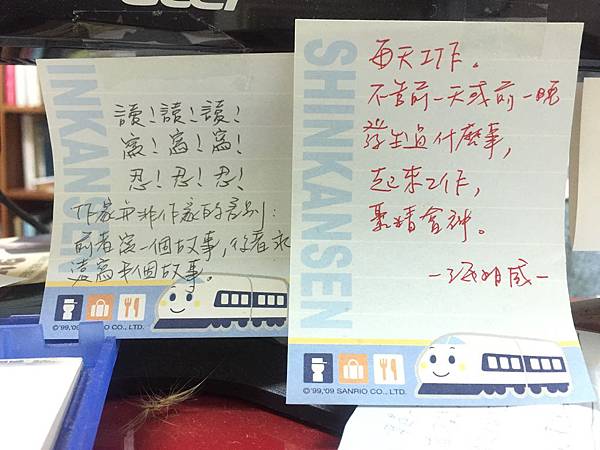 acer
INKANSEN
讀！讀！讀！
寫！寫！寫！
忍！忍！忍！
作家與非作家的差別：
前者寫一個故事，後者永
遠寫半個故事。
©'99,'09 SANRIO CO., LTD.
SHINKANSEN
每天工作。
不管前一天或前一晚
發生過什麼事，
起來工作，
聚精會神。
©'99,'09 SANRIO CO., LTD.